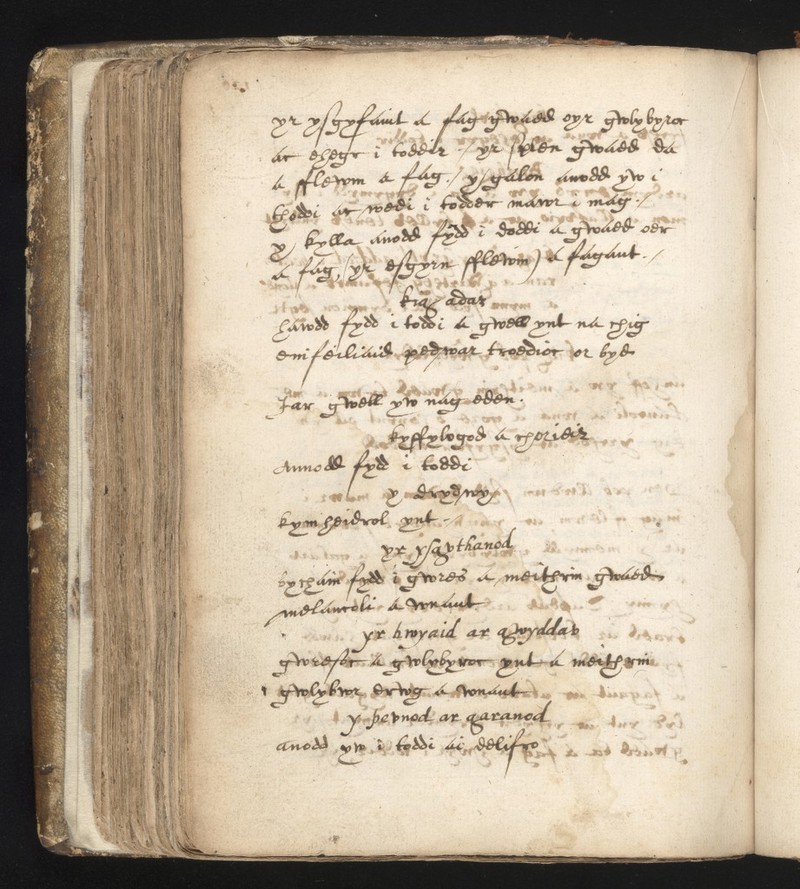 yr ysgyfaint a fag gwaed oyr gwlybyroc
ac ehegr i toddir . / yr splen gwaed da
a fflewm a fag . / y galon anodd yw i
thoddi ac wedi i todder mawr i mag . /
y kylla anodd fydd i doddi a gwaed oer
a fag, / yr esgyrn fflewm) a fagant . /
kig adar
hawdd fydd i toddi a gwell ynt na chig
enifeiliaid pedwar troedioc or byd
Iar gwell yw nag eden .
kyffylogod a chorieir
Annodd fydd i toddi
y drydwy
kymheidrol ynt .
yr ysguthanod
bychain fydd i gwres a meithrin gwaed
melancoli a wnant
yr hwyaid ar gwyddav
gwresoc a gwlybyroc ynt a meithrin
gwlybwr drwg a wnant
y pevnod ar garanod
anodd yw i toddi ac delifro